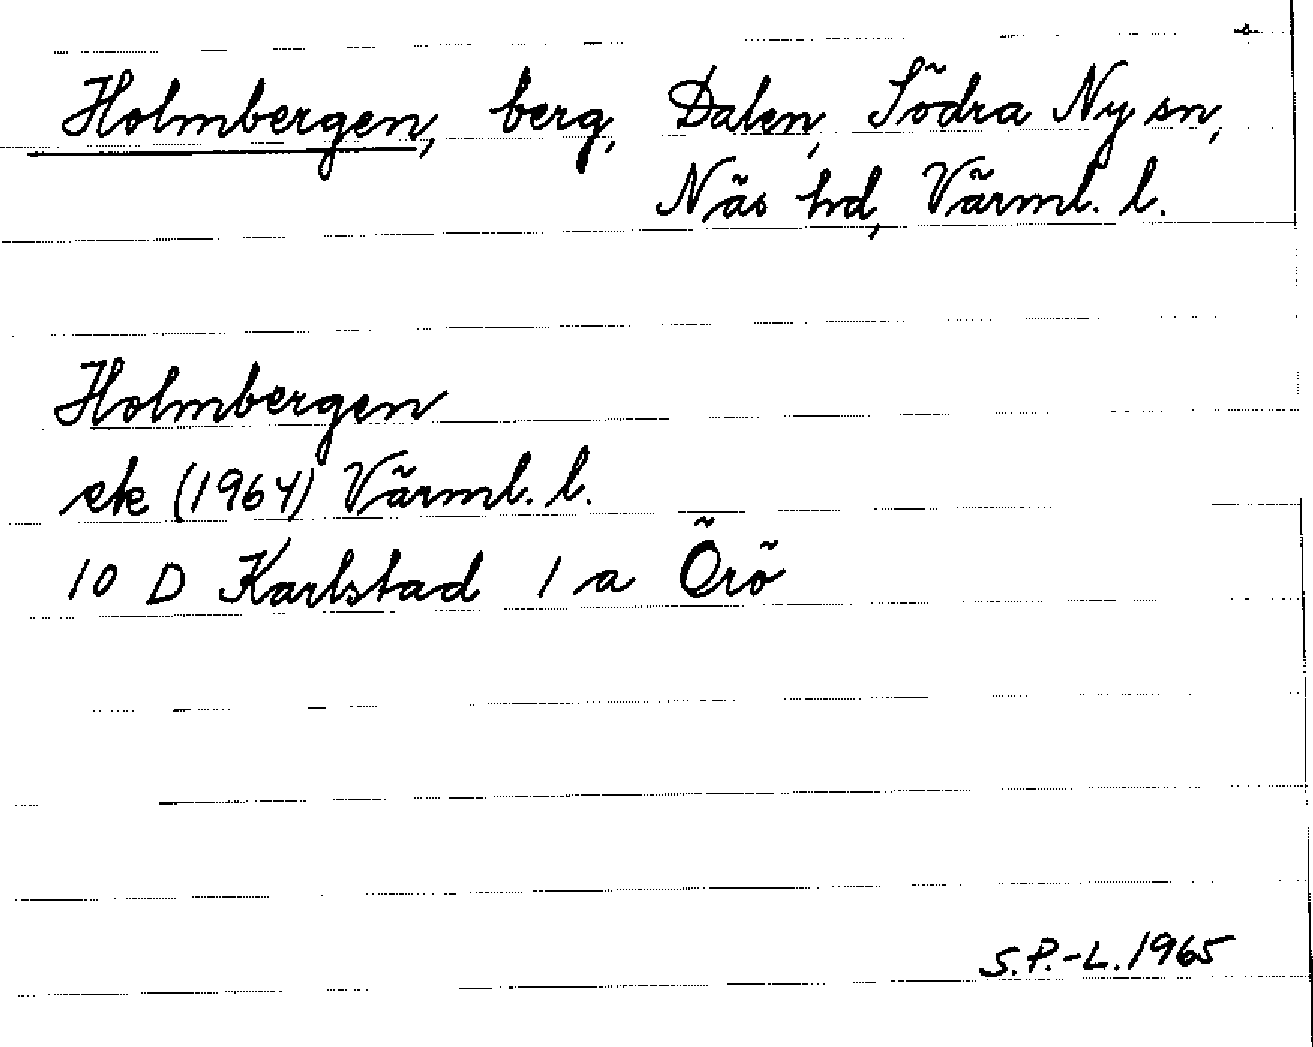 Holmbergen, berg, Dalen, Södra Ny sn,
Näs hd, Värml. l.
Holmbergen
ek (1964) Värml. l.
10 D Karlstad 1 a Örö
S.P.-L. 1965